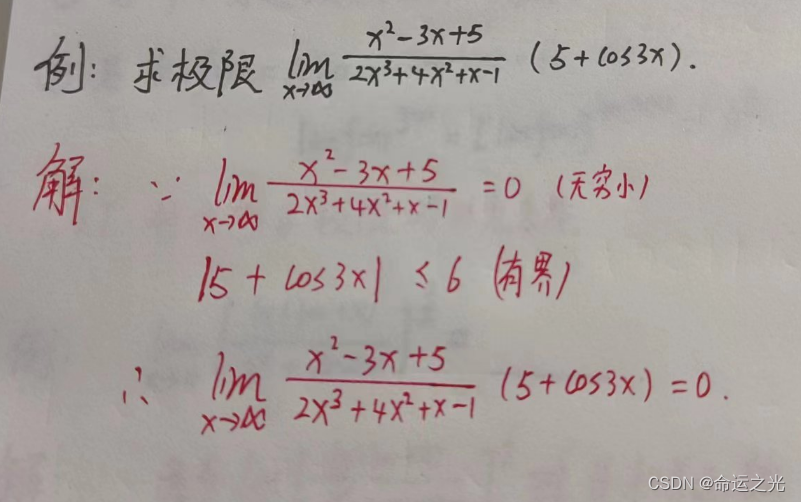 例: 求极限 lim x→∞ (x²-3x+5)/(2x³+4x²+x-1) (5+cos3x).
解: ∵ lim x→∞ (x²-3x+5)/(2x³+4x²+x-1) =0 (无穷小)
|5+cos3x| ≤ 6 (有界)
∴ lim x→∞ (x²-3x+5)/(2x³+4x²+x-1) (5+cos3x) =0.
CSDN @命运之光